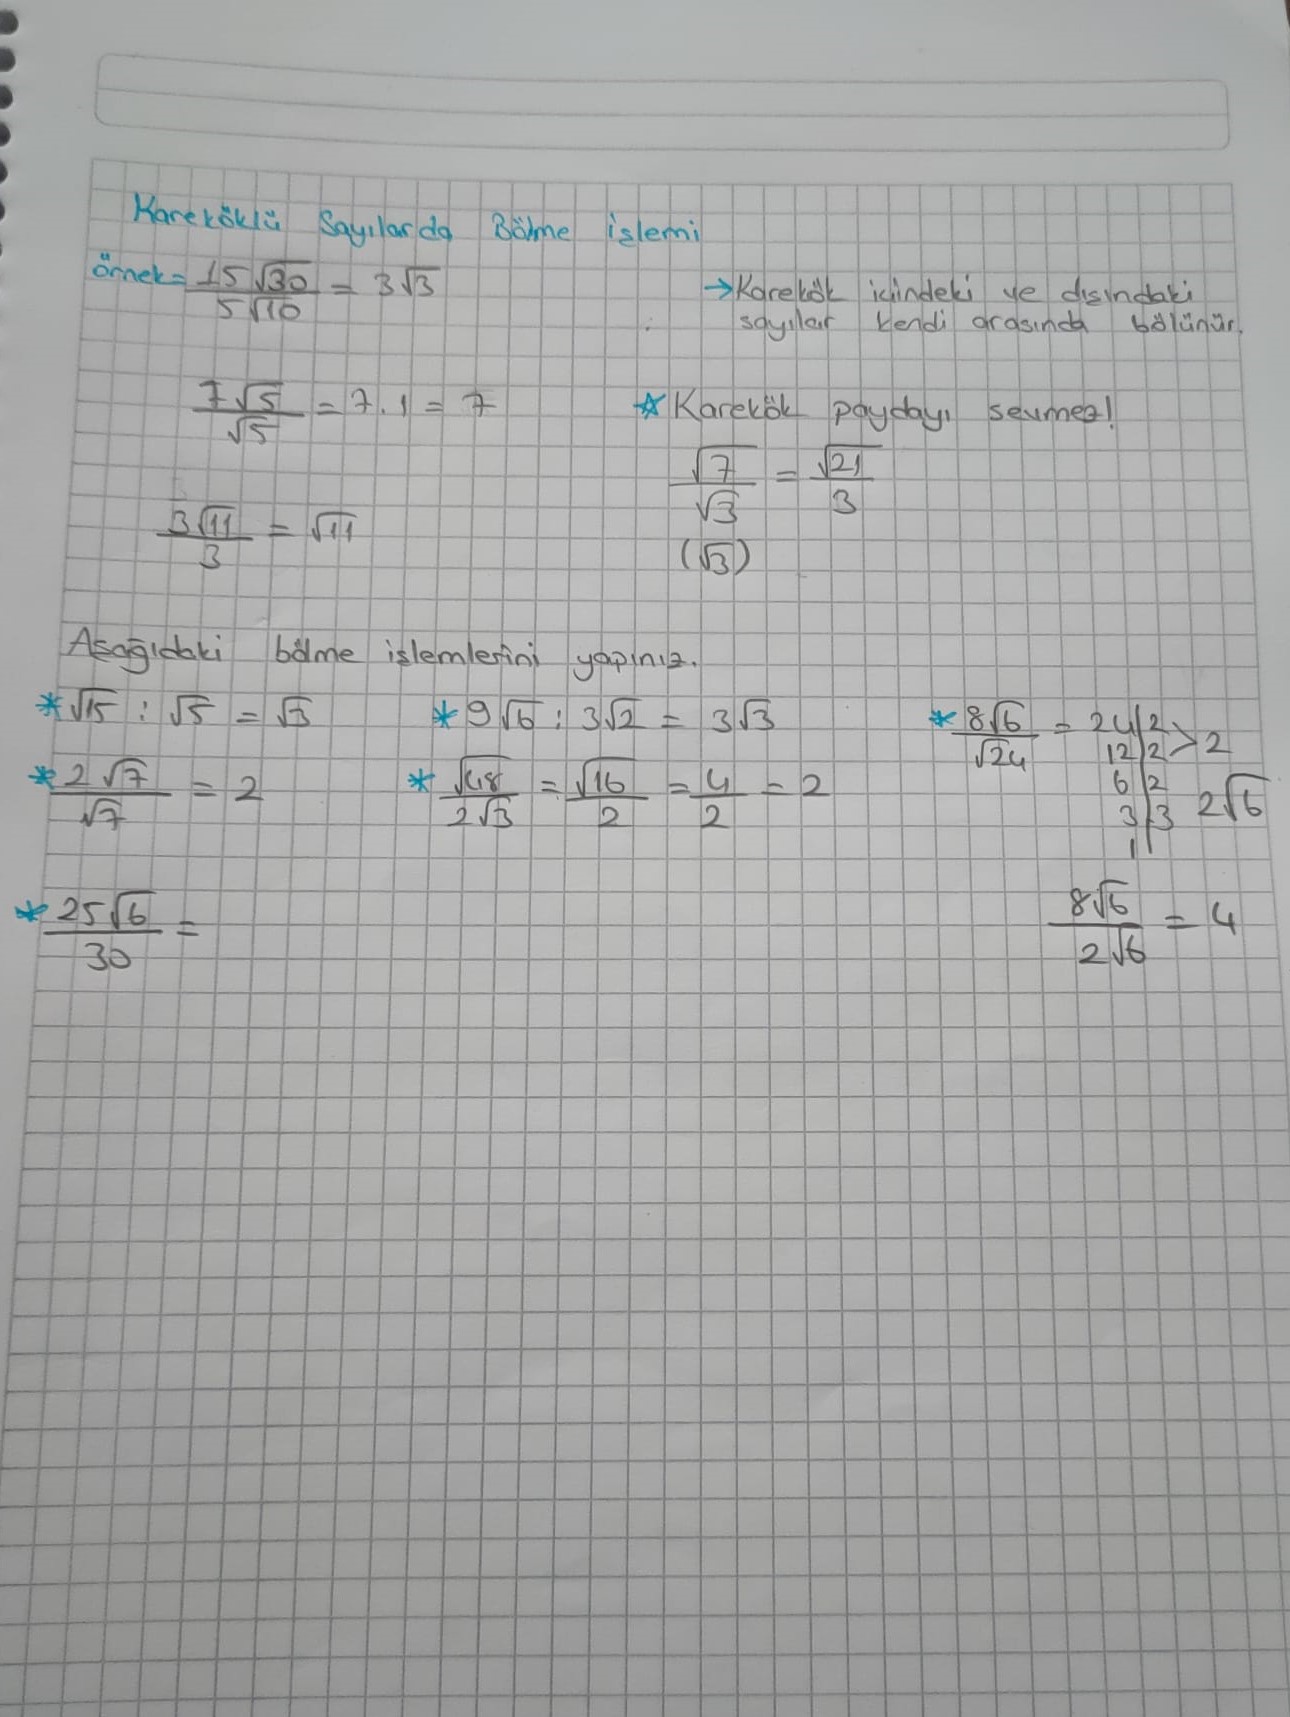 Kareköklü Sayılarda Bölme işlemi
örnek= 15√30 / 5√10 = 3√3
→Karekök içindeki ve dışındaki
sayılar kendi arasında bölünür.
7√5 / √5 = 7.1 = 7
☆Karekök paydayı sevmez!
√7 / √3 = √21 / 3
(√3)
3√11 / 3 = √11
Aşağıdaki bölme işlemlerini yapınız.
*√15 : √5 = √3
*9√6 : 3√2 = 3√3
*8√6 / √24 = 24|2
12|2 >2
6|2
3|3 2√6
1|
*2√7 / √7 = 2
*√48 / 2√3 = √16 / 2 = 4 / 2 = 2
8√6 / 2√6 = 4
*25√6 / 30 =